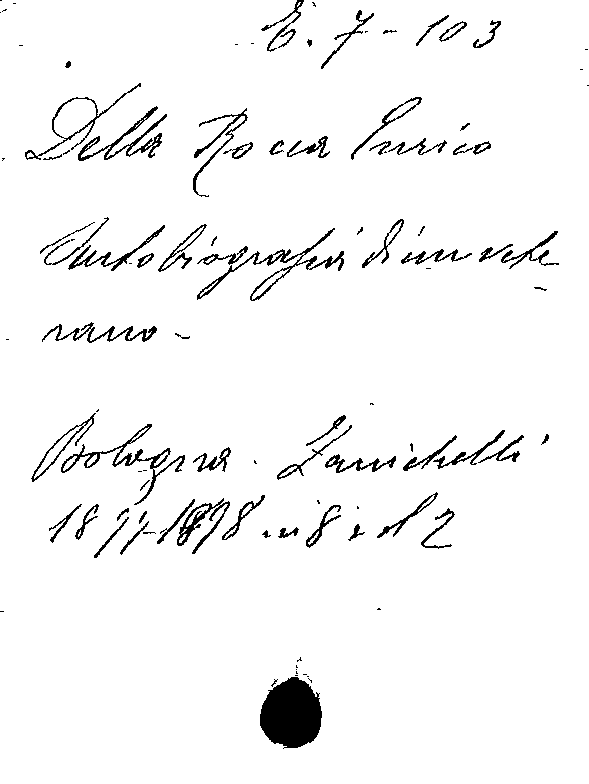 E. 7-103
Della Rocca Enrico
Autobiografia di un vete-
rano-
Bologna. Zanichelli
1897-1898 in 8° vol 2